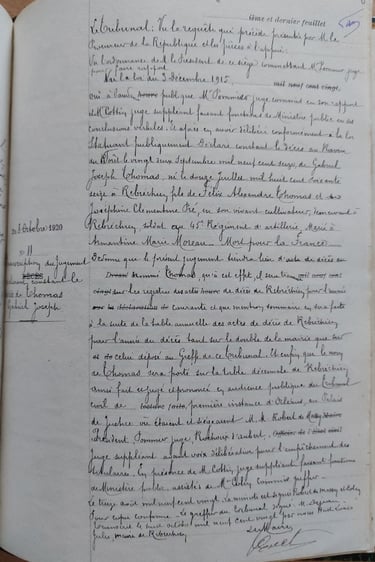 ème et dernier feuillet
Le Tribunal: Vu la requête qui précède présentée par M. le
Procureur de la République et les pièces à l'appui.
Vu l'ordonnance de M. le Président de ce siège commettant M. Pommier juge
pour faire rapport
Vu la loi du 3 Décembre 1915.
mil neuf cent vingt,
ouï à l'audience publique M. Pommier juge commissaire en son rapport
et M. Cottin, juge suppléant faisant fonctions de Ministère public en ses
conclusions verbales. Et après en avoir délibéré conformément à la loi
Statuant publiquement. Déclare constant le décès au
du Bois le vingt cinq Septembre mil neuf cent seize, de Gabriel
Joseph Thomas, né le douze Juillet mil huit cent quatre vingt
seize à Rebréchien, fils de Félix Alexandre Thomas et de
Joséphine Clementine Pré, en son vivant cultivateur, demeurant à
Rebréchien, soldat au 45e Régiment d'artillerie, Marié à
Armantine Marie Moreau. Mort pour la France.
Ordonne que le présent jugement tiendra lieu d'acte de décès au
Thomas, qu'à cet effet, il sera
sur les registres des actes de décès de Rebréchien pour l'année
courante et que mention sommaire en sera faite
à la suite de la table annuelle des actes de décès de Rebréchien
pour l'année du décès tant sur le double de la mairie que sur
celui déposé au Greffe de ce Tribunal. Et enfin que le nom
de Thomas sera porté sur la table décennale de Rebréchien
Ainsi fait et jugé et prononcé en audience publique du Tribunal
civil de première instance d'Orléans, au Palais
de Justice où étaient et siégeaient M. M. Robert de
Président Pommier juge,
juge suppléant ayant voix délibérative pour l'empêchement des
titulaires. En présence de M. Cottin, juge suppléant faisant fonctions
de Ministère public assistés de Me commis greffier.
Le treize août mil neuf cent vingt. La minute est signée Robert de et
Pour copie conforme. Le greffier du Tribunal signé:
Transcrit le huit octobre mil neuf cent vingt par nous
Jules, maire de Rebréchien
Le Maire,
8 Octobre 1920
N 11
Transcription du jugement
constatant le
décès de Thomas
Gabriel Joseph